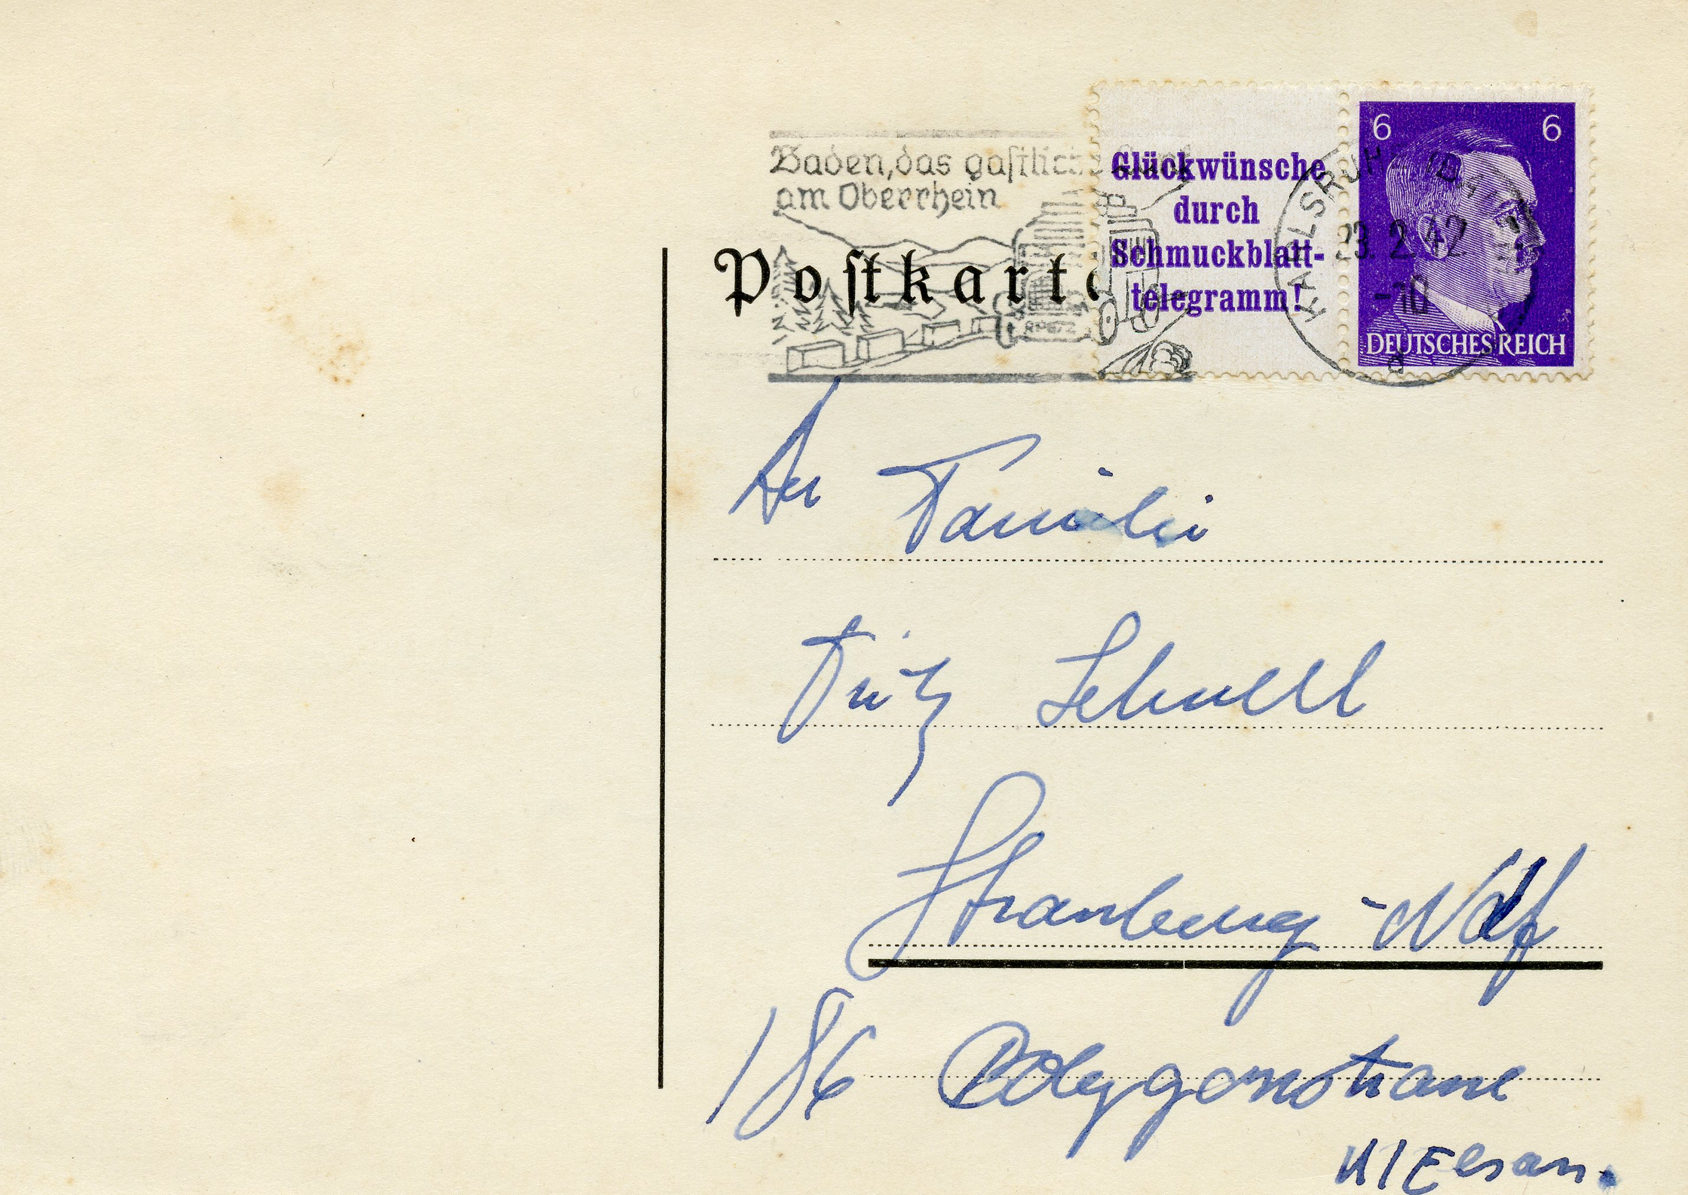 Baden, das gastliche Land
am Oberrhein
Glückwünsche
durch
Schmuckblatt-
telegramm!
6 6
DEUTSCHES REICH
KARLSRUHE (BADEN)
23. 2. 42
-10
d
Postkarte
An Familie
Fritz Schnell
Strassburg-Ndf
186 Polygonstrasse